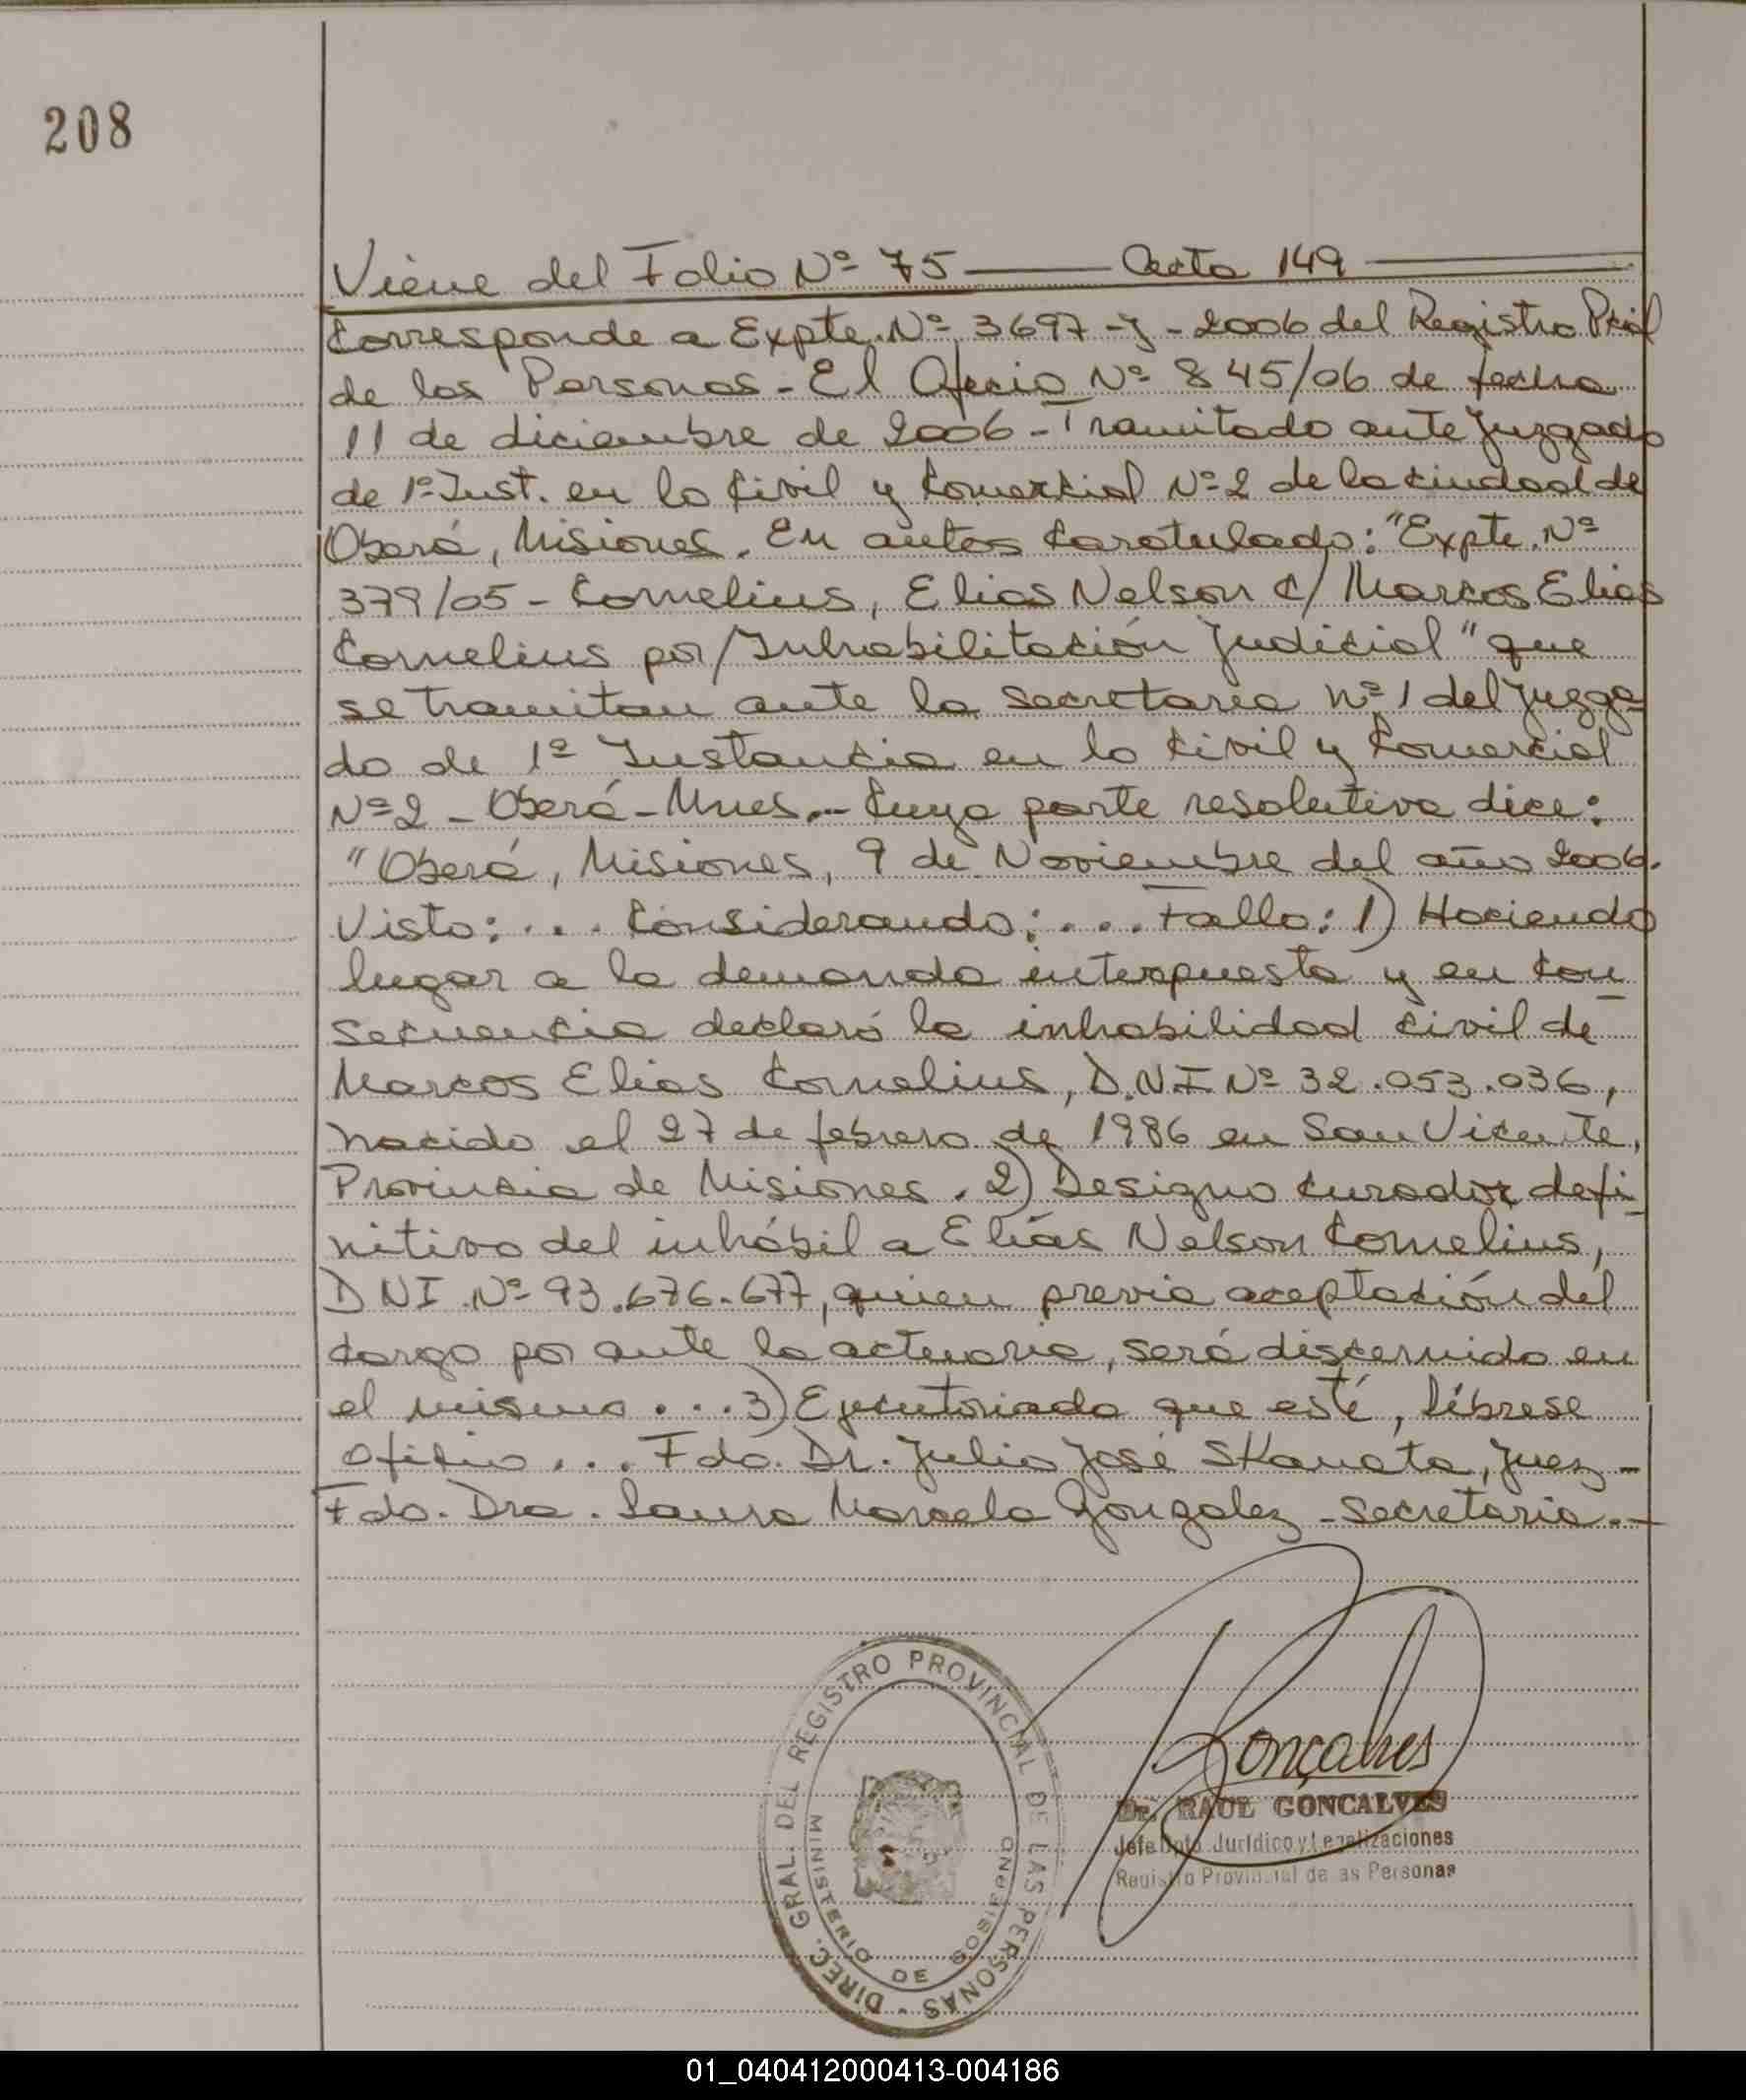 208
Viene del Folio Nº 75 —— Acta 149 ——
Corresponde a Expte. Nº 3697 - J - 2006 del Registro Pcial
de las Personas - El Oficio Nº 845/06 de fecha
11 de diciembre de 2006 - Tramitado ante Juzgado
de 1º Inst. en lo Civil y Comercial Nº 2 de la ciudad de
Oberá, Misiones. En autos Carotulado: "Expte. Nº
379/05 - Cornelius, Elias Nelson C/ Marcos Elias
Cornelius por/Inhabilitación Judicial" que
se tramitan ante la Secretaria Nº 1 del Juzga-
do de 1º Instancia en lo Civil y Comercial
Nº 2 - Oberá - Mnes.- Cuya parte resolutiva dice:
"Oberá, Misiones, 9 de Noviembre del año 2006.
Visto: ... Considerando: .... Fallo: 1) Haciendo
lugar a la demanda interpuesta y en con
secuencia declaró la inhabilidad civil de
Marcos Elias Cornelius, D.N.I Nº 32.053.036,
nacido el 27 de febrero de 1986 en San Vicente,
Provincia de Misiones. 2) Designo curador defi-
nitivo del inhábil a Elías Nelson Cornelius,
DNI Nº 93.676.677, quien previa aceptación del
cargo por ante la actuaria, será discernido en
el mismo ... 3) Ejecutoriada que esté, líbrese
oficio ... Fdo. Dr. Julio José Skanata, Juez -
Fdo. Dra. Laura Marcela Gonzalez - Secretaria.-
DIREC. GRAL. DEL REGISTRO PROVINCIAL DE LAS PERSONAS -
MINISTERIO DE GOBIERNO
Gonçalves
Dr. RAUL GONCALVES
Jefe Dpto. Jurídico y Legalizaciones
Registro Provincial de as Personas
01_040412000413-004186